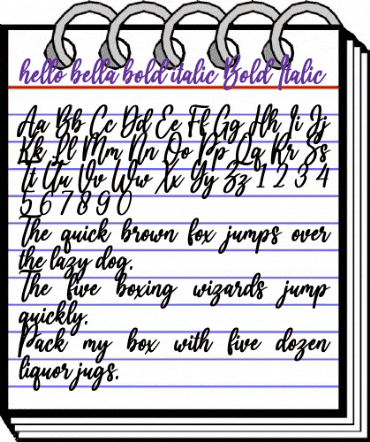 hello bella bold italic Bold Italic
Aa Bb Cc Dd Ee Ff Gg Hh Ii Jj
Kk Ll Mm Nn Oo Pp Qq Rr Ss
Tt Uu Vv Ww Xx Yy Zz 1 2 3 4
5 6 7 8 9 0
The quick brown fox jumps over
the lazy dog.
The five boxing wizards jump
quickly.
Pack my box with five dozen
liquor jugs.